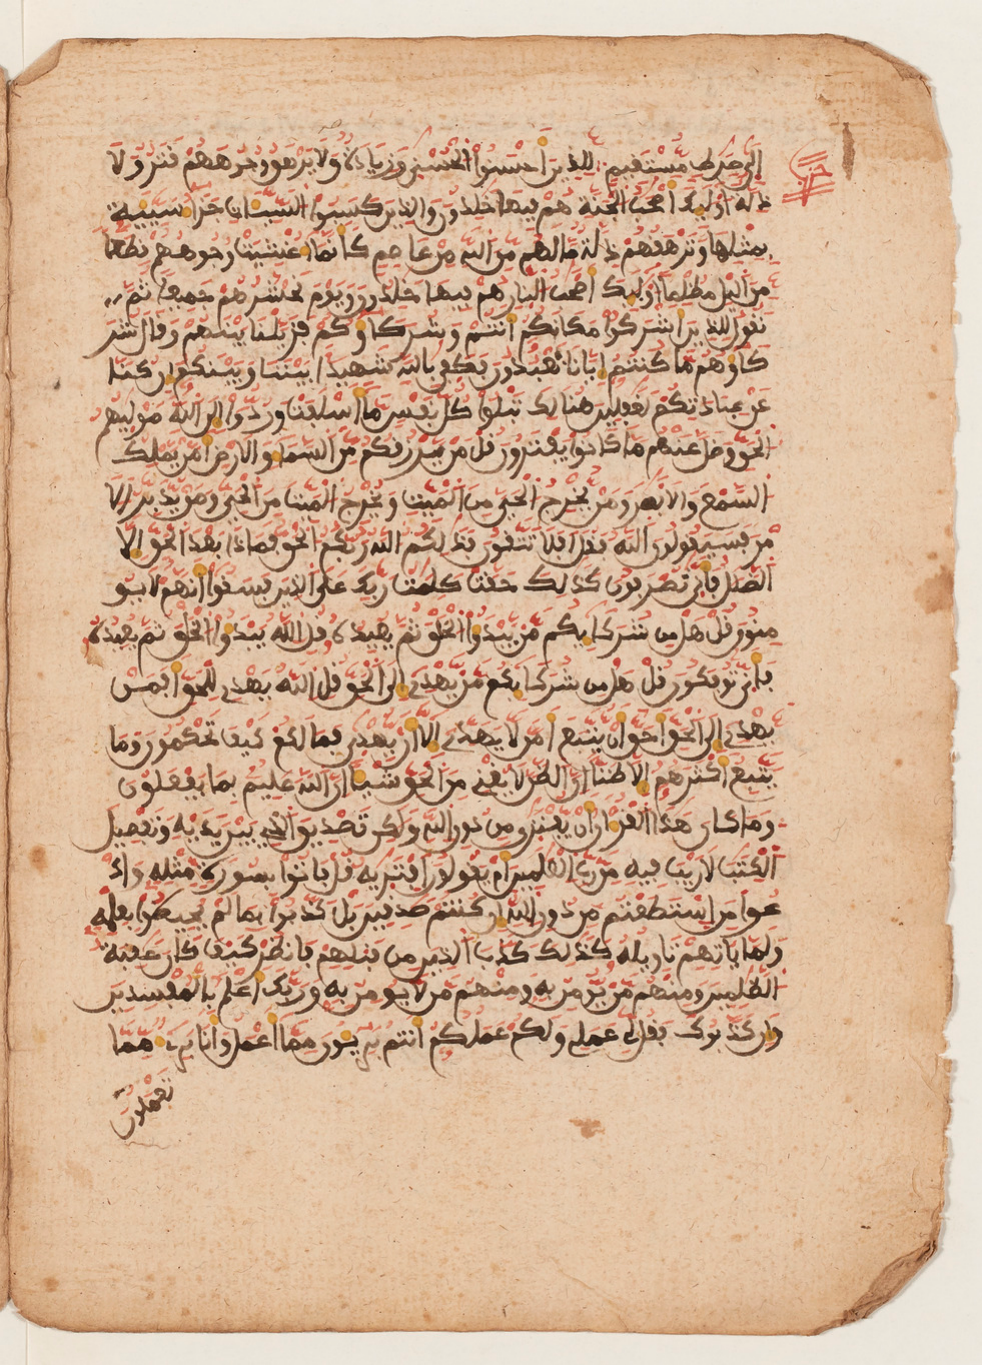 إلى صراط مستقيم للذين أحسنوا الحسنى وزيادة ولا يرهق وجوههم قتر ولا
ذلة أوليك أصحب الجنة هم فيها خلدون والذين كسبوا السيئات جزاء سيئة
بمثلها وترهقهم ذلة ما لهم من الله من عاصم كأنما أغشيت وجوههم قطعا
من اليل مظلما أوليك أصحب النار هم فيها خلدون ويوم نحشرهم جميعا ثم
نقول للذين أشركوا مكانكم أنتم وشركاؤكم فزيلنا بينهم وقال شر
كاؤهم ما كنتم إيانا تعبدون فكفى بالله شهيدا بيننا وبينكم إن كنا
عن عبادتكم لغفلين هنالك تبلوا كل نفس ما أسلفت وردوا إلى الله موليهم
الحق وضل عنهم ما كانوا يفترون قل من يرزقكم من السماء والأرض أمن يملك
السمع والأبصر ومن يخرج الحي من الميت ويخرج الميت من الحي ومن يدبر الا
مر فسيقولون الله فقل أفلا تتقون فذلكم الله ربكم الحق فماذا بعد الحق إلا
الضلل فأنى تصرفون كذلك حقت كلمت ربك على الذين فسقوا أنهم لا يو
منون قل هل من شركايكم من يبدؤا الخلق ثم يعيده قل الله يبدؤا الخلق ثم يعيده
فأنى توفكون قل هل من شركايكم من يهدي إلى الحق قل الله يهدي للحق أفمن
يهدي إلى الحق أحق أن يتبع أمن لا يهدي إلا أن يهدى فما لكم كيف تحكمون وما
يتبع أكثرهم إلا ظنا إن الظن لا يغني من الحق شيئا إن الله عليم بما يفعلون
وما كان هذا القرءان أن يفترى من دون الله ولكن تصديق الذي بين يديه وتفصيل
الكتب لا ريب فيه من رب العلمين أم يقولون افتريه قل فاتوا بسورة مثله واد
عوا من استطعتم من دون الله إن كنتم صدقين بل كذبوا بما لم يحيطوا بعلمه
ولما ياتهم تاويله كذلك كذب الذين من قبلهم فانظر كيف كان عقبة
الظلمين ومنهم من يومن به ومنهم من لا يومن به وربك أعلم بالمفسدين
وإن كذبوك فقل لي عملي ولكم عملكم أنتم بريون مما أعمل وأنا بريء مما
تعملون